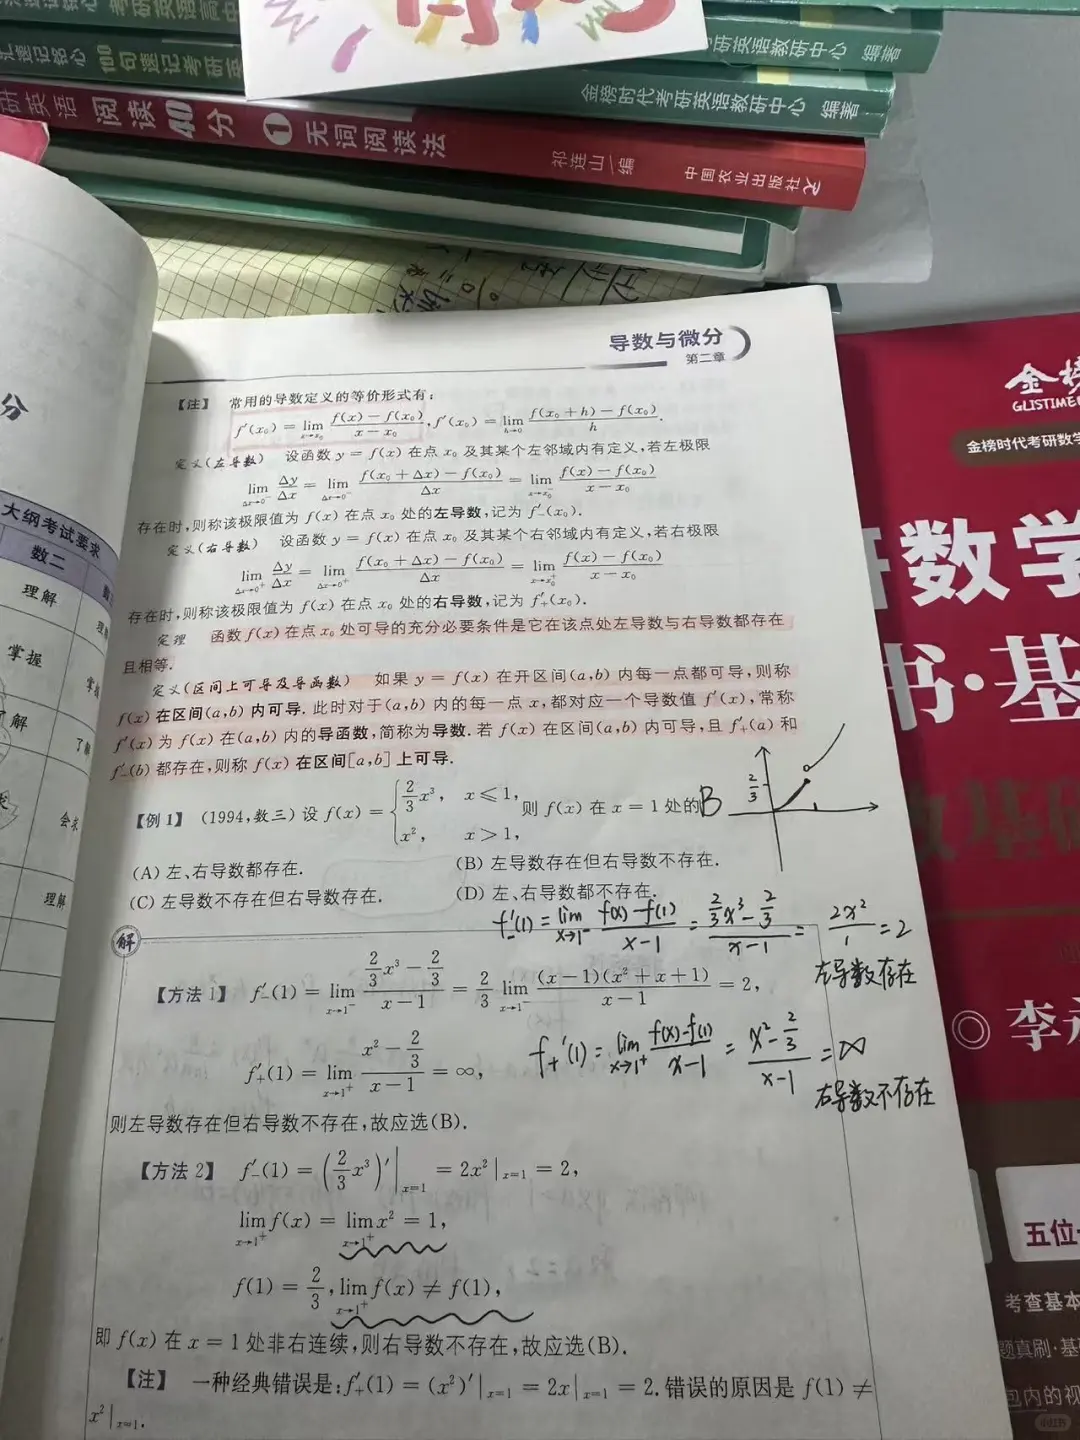 考研英语高中
考研英语教研中心 编著
汇速记铭心 100句速记考研英
金榜时代考研英语教研中心 编著
研英语 阅读40分 ① 无词阅读法 祁连山 编 中国农业出版社
分
大纲考试要求
数二
理解
掌握
了解
会求
理解
导数与微分
第二章
【注】 常用的导数定义的等价形式有:
f′(x₀) = lim_{x→x₀} (f(x) − f(x₀))/(x − x₀), f′(x₀) = lim_{h→0} (f(x₀ + h) − f(x₀))/h.
定义(左导数) 设函数 y = f(x) 在点 x₀ 及其某个左邻域内有定义,若左极限
lim_{Δx→0⁻} Δy/Δx = lim_{Δx→0⁻} (f(x₀ + Δx) − f(x₀))/Δx = lim_{x→x₀⁻} (f(x) − f(x₀))/(x − x₀)
存在时,则称该极限值为 f(x) 在点 x₀ 处的左导数,记为 f′₋(x₀).
定义(右导数) 设函数 y = f(x) 在点 x₀ 及其某个右邻域内有定义,若右极限
lim_{Δx→0⁺} Δy/Δx = lim_{Δx→0⁺} (f(x₀ + Δx) − f(x₀))/Δx = lim_{x→x₀⁺} (f(x) − f(x₀))/(x − x₀)
存在时,则称该极限值为 f(x) 在点 x₀ 处的右导数,记为 f′₊(x₀).
定理 函数 f(x) 在点 x₀ 处可导的充分必要条件是它在该点处左导数与右导数都存在
且相等.
定义(区间上可导及导函数) 如果 y = f(x) 在开区间(a,b) 内每一点都可导,则称
f(x) 在区间(a,b) 内可导. 此时对于(a,b) 内的每一点 x,都对应一个导数值 f′(x),常称
f′(x) 为 f(x) 在(a,b) 内的导函数,简称为导数. 若 f(x) 在区间(a,b) 内可导,且 f′₊(a) 和
f′₋(b) 都存在,则称 f(x) 在区间[a,b] 上可导.
2/3
【例 1】 (1994,数三) 设 f(x) = { 2/3 x³, x ⩽ 1, x², x > 1, 则 f(x) 在 x = 1 处的 B
(A) 左、右导数都存在.
(B) 左导数存在但右导数不存在.
(C) 左导数不存在但右导数存在.
(D) 左、右导数都不存在.
f₋′(1) = lim_{x→1⁻} (f(x) − f(1))/(x − 1) = (2/3 x³ − 2/3)/(x − 1) = 2x²/1 = 2
左导数存在
解
【方法 1】 f′₋(1) = lim_{x→1⁻} (2/3 x³ − 2/3)/(x − 1) = 2/3 lim_{x→1⁻} ((x − 1)(x² + x + 1))/(x − 1) = 2,
f₊′(1) = lim_{x→1⁺} (f(x) − f(1))/(x − 1) = (x² − 2/3)/(x − 1) = ∞
右导数不存在
f′₊(1) = lim_{x→1⁺} (x² − 2/3)/(x − 1) = ∞,
则左导数存在但右导数不存在,故应选(B).
【方法 2】 f′₋(1) = (2/3 x³)′|ₓ₌₁ = 2x²|ₓ₌₁ = 2,
lim_{x→1⁺} f(x) = lim_{x→1⁺} x² = 1,
f(1) = 2/3, lim_{x→1⁺} f(x) ≠ f(1),
即 f(x) 在 x = 1 处非右连续,则右导数不存在,故应选(B).
【注】 一种经典错误是: f′₊(1) = (x²)′|ₓ₌₁ = 2x|ₓ₌₁ = 2. 错误的原因是 f(1) ≠
x²|ₓ₌₁.
金榜
GLISTIME
金榜时代考研数学
研数学
书·基
李永
五位
考查基本
题真刷·基
包内的视
小红书